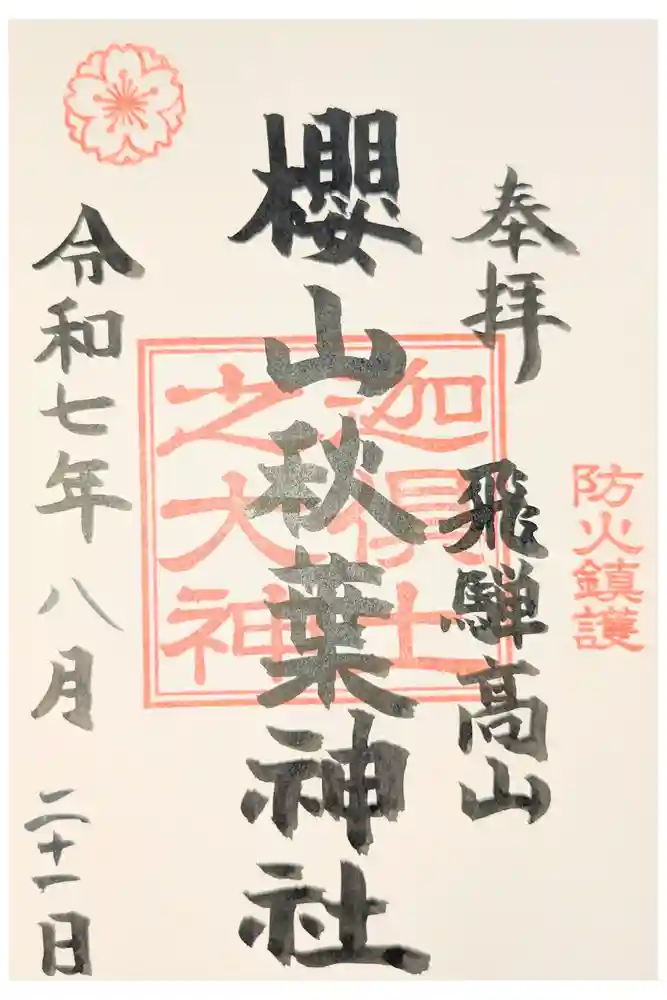 防火鎮護
奉拝
飛騨高山
櫻山秋葉神社
迦俱土
之大神
令和七年八月二十一日